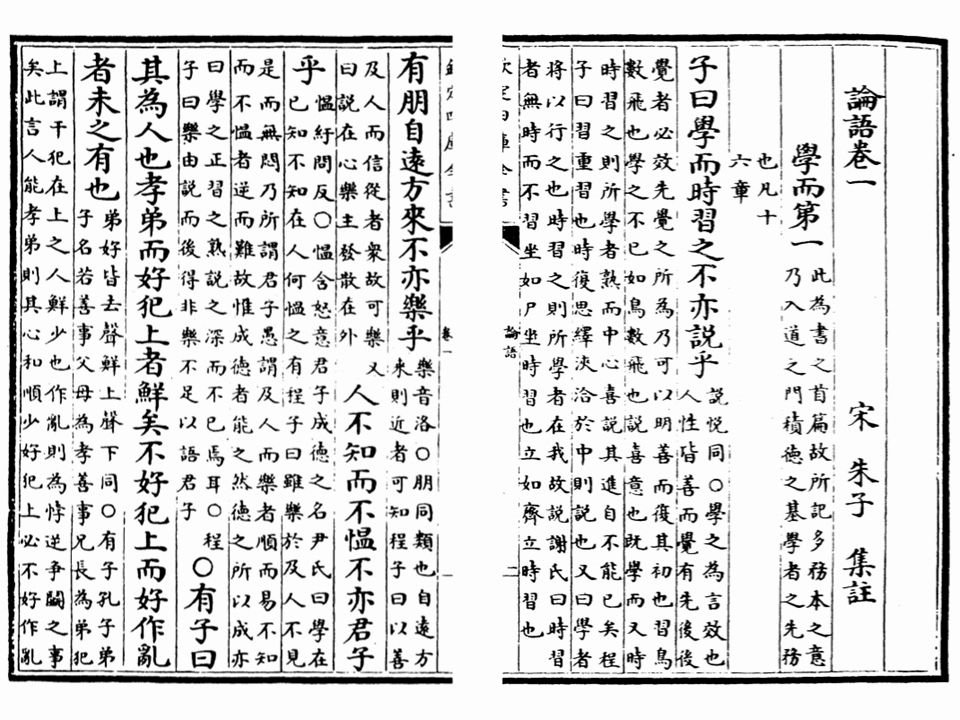 論語卷一 宋 朱子 集註
學而第一
此為書之首篇故所記多務本之意
乃入道之門積德之基學者之先務
也凡十
六章
子曰學而時習之不亦説乎
説悦同○學之為言效也
人性皆善而覺有先後後
覺者必效先覺之所為乃可以明善而復其初也習鳥
數飛也學之不已如鳥數飛也説喜意也既學而又時
時習之則所學者熟而中心喜説其進自不能已矣程
子曰習重習也時復思繹浹洽於中則説也又曰學者
將以行之也時習之則所學者在我故説謝氏曰時習
者無時而不習坐如尸坐時習也立如齊立時習也
欽定四庫全書 論語 二
欽定四庫全書 卷一
有朋自遠方來不亦樂乎
樂音洛○朋同類也自遠方
來則近者可知程子曰以善
及人而信從者衆故可樂又
曰説在心樂主發散在外
人不知而不愠不亦君子
乎
愠紆問反○愠含怒意君子成德之名尹氏曰學在
已知不知在人何愠之有程子曰雖樂於及人不見
是而無悶乃所謂君子愚謂及人而樂者順而易不知
而不愠者逆而難故惟成德者能之然德之所以成亦
曰學之正習之熟説之深而不已焉耳○程
子曰樂由説而後得非樂不足以語君子
○有子曰
其為人也孝弟而好犯上者鮮矣不好犯上而好作亂
者未之有也
弟好皆去聲鮮上聲下同○有子孔子弟
子名若善事父母為孝善事兄長為弟犯
上謂干犯在上之人鮮少也作亂則為悖逆爭鬭之事
矣此言人能孝弟則其心和順少好犯上必不好作亂